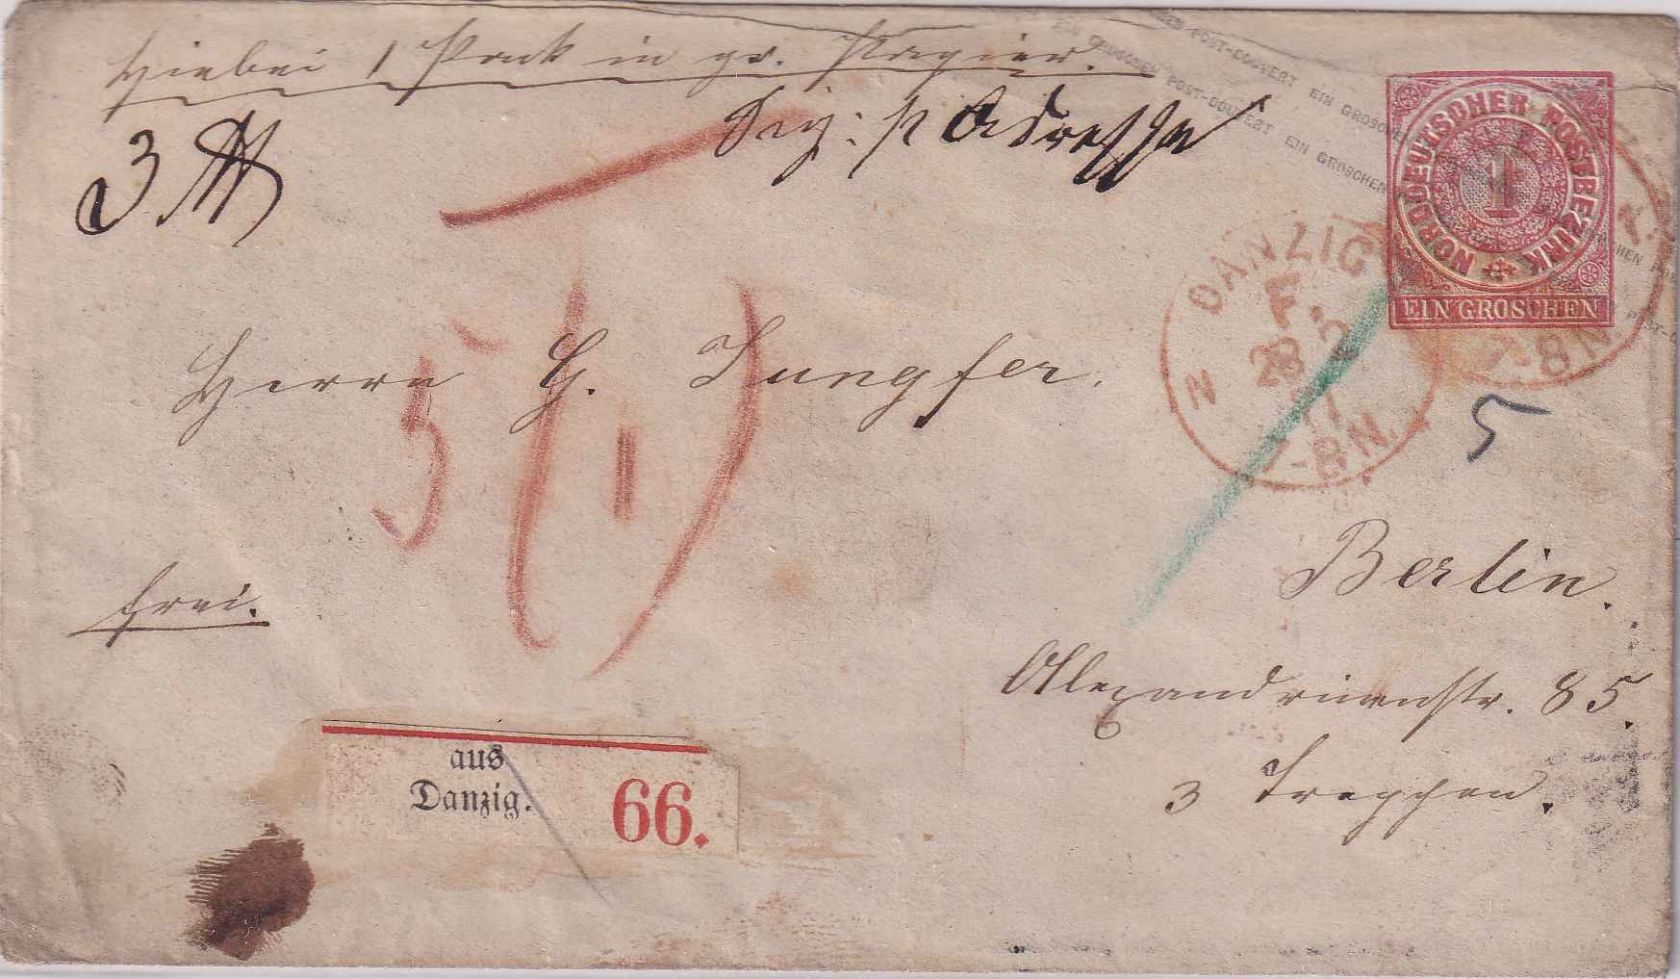 Hiebei 1 Pack in gr. Papier.
Sig: p Adresse
3 ℔
EIN GROSCHEN POST-COUVERT EIN GROSCHEN
EIN GROSCHEN POST-COUVERT EIN GROSCHEN
NORDDEUTSCHER POSTBEZIRK
1
EIN GROSCHEN
DANZIG
F
28 2
7-8 N.
7-8 N
5
Herrn G. Jungfer.
5 (1)
Berlin.
frei.
Alexandrinenstr. 85.
3 Treppen.
aus
Danzig.
66.